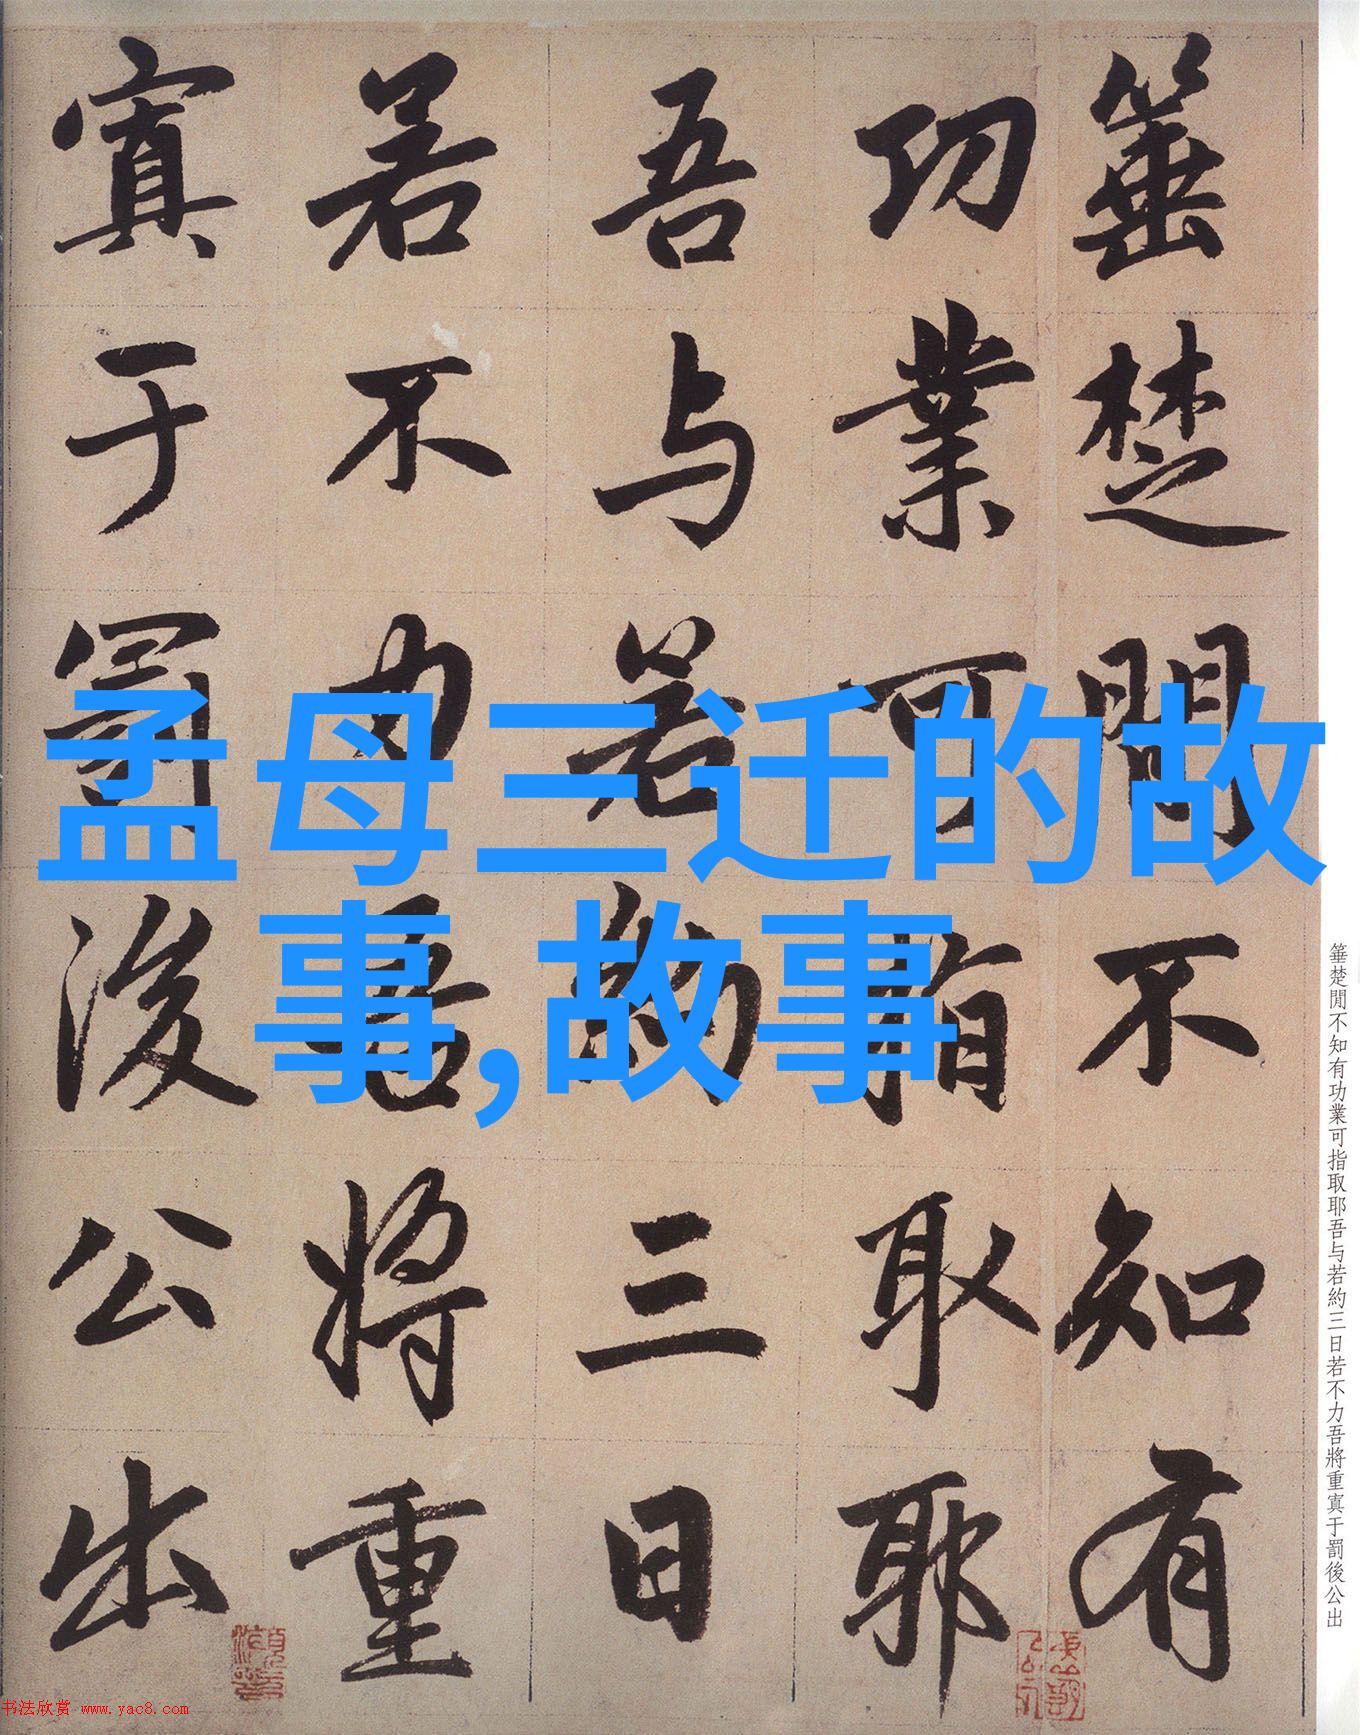 箠楚閒不知有
功業可指取耶
吾与若約三日
若不力吾將重
寘于罰後公出
孟母三迁的故
事,故事
箠楚閒不知有功業可指取耶吾与若約三日若不力吾將重寘于罰後公出
书法欣赏 www.yac8.com